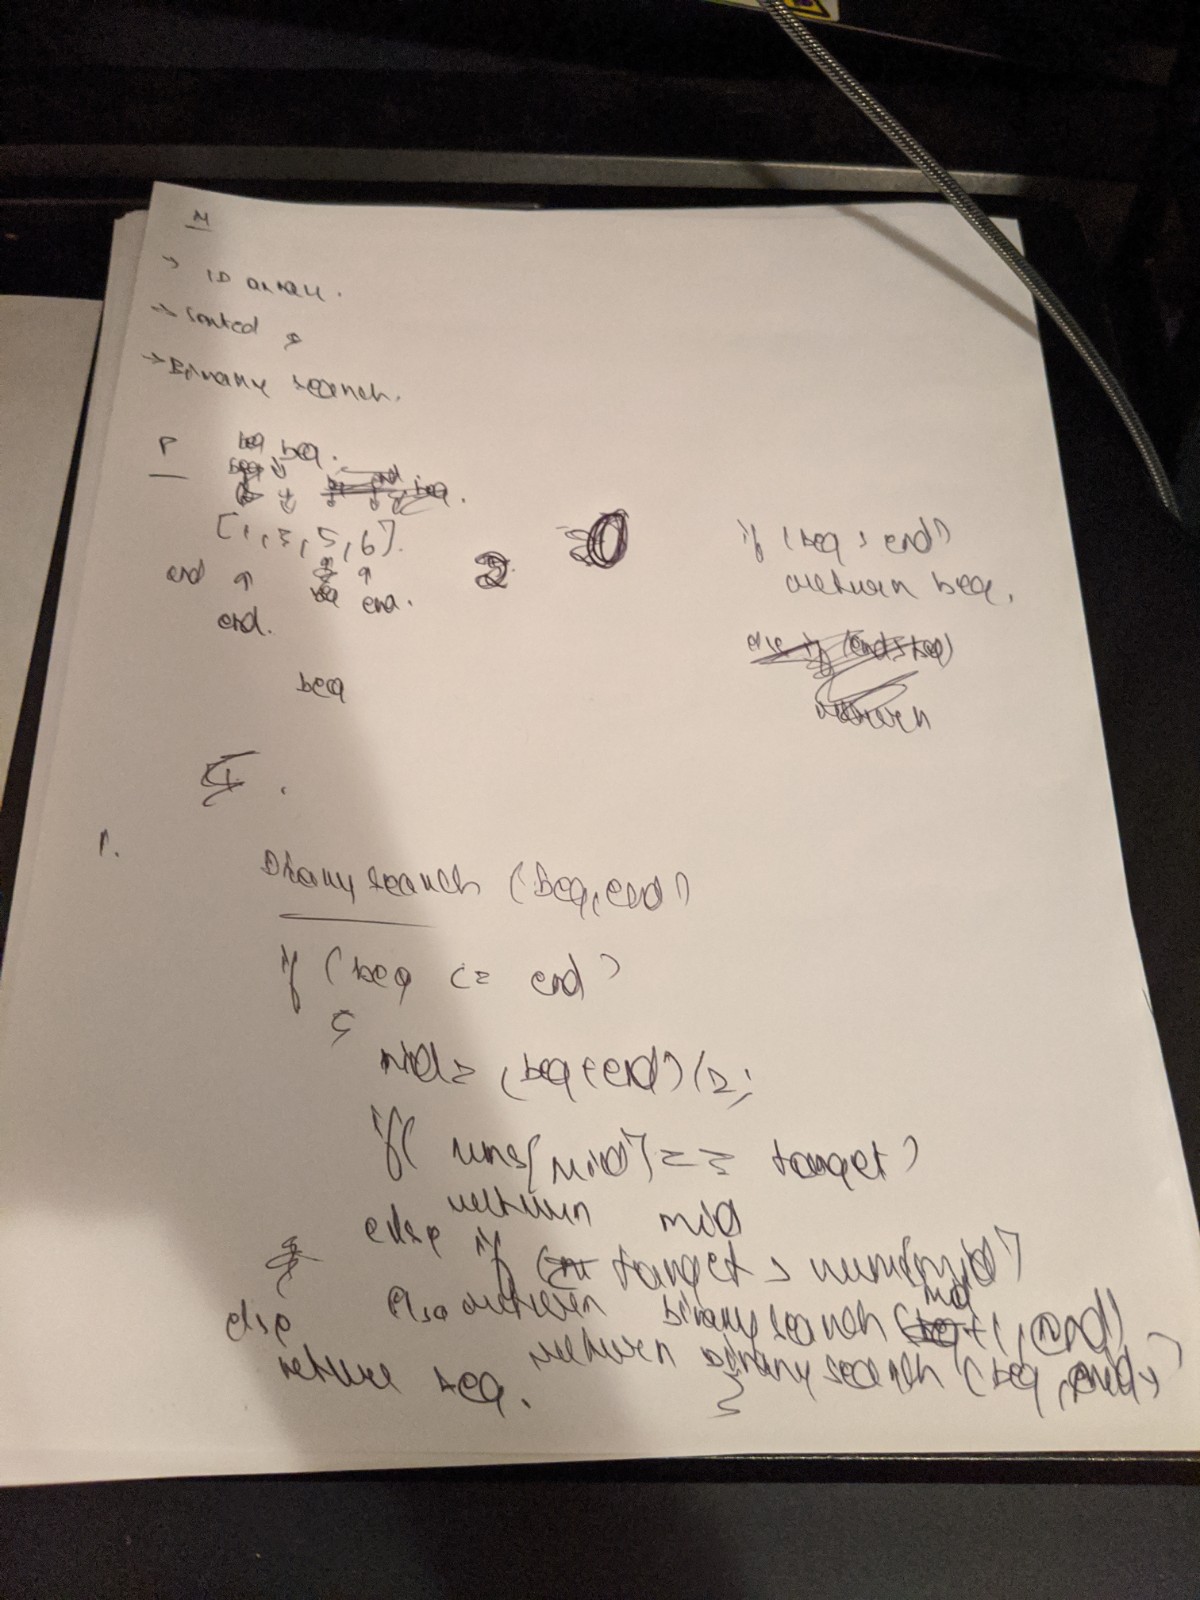 M
→ 1D array.
→ sorted
→ Binary search.
P
beg beg.
beg
end beg.
[1, 3, 5, 6].
end
beg end.
end.
2
beg
if (beg > end)
return beg.
else if (end > beg)
return
1.
Binary search (beg, end)
if (beg <= end)
{
mid = (beg + end) / 2;
if( nums[mid] == target)
return mid
else if target > nums[mid]
mid
else return binary search (beg + 1, end)
else return binary search (beg,
return beg.
}